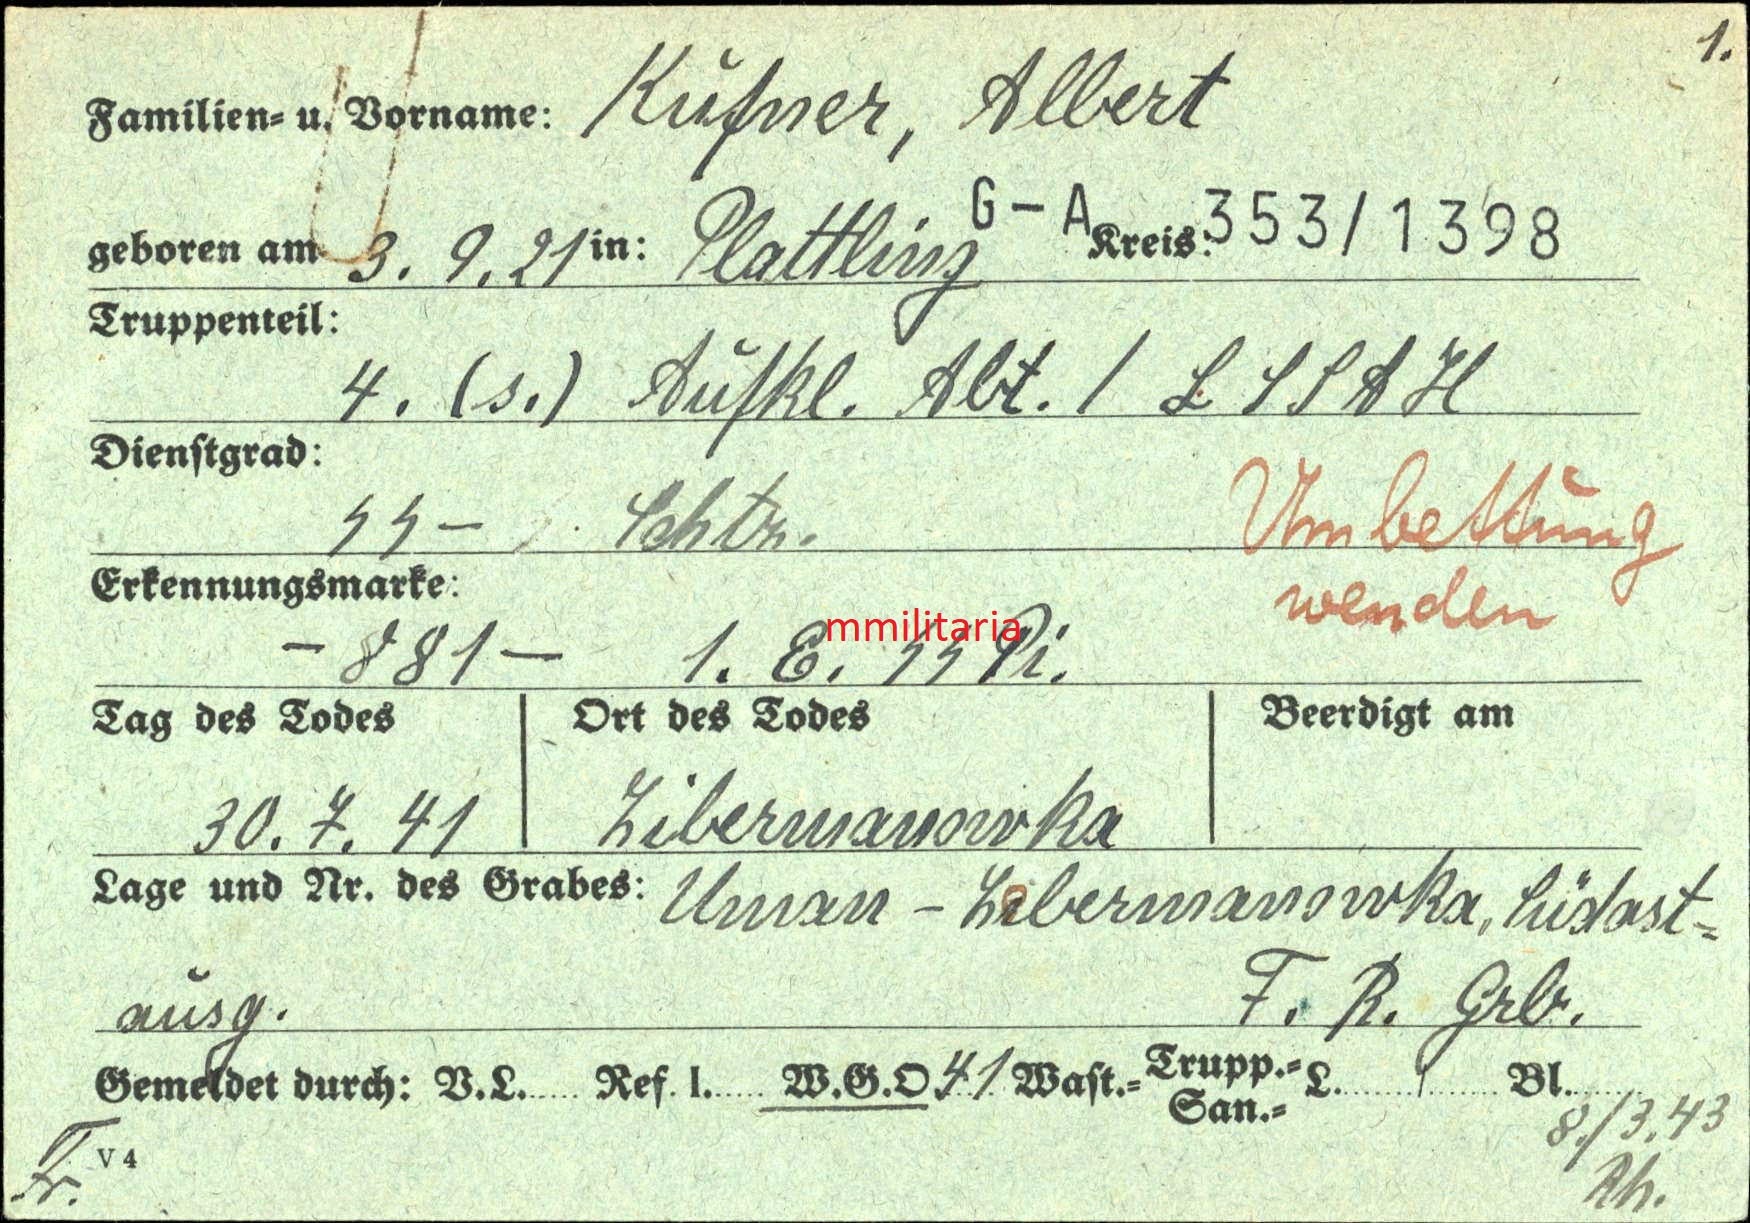 1.
Familien- u. Vorname: Kufner, Albert
geboren am 3. 9. 21 in: Plattling G-A Kreis: 353/1398
Truppenteil:
4. (s.) Aufkl. Abt. / LSSAH
Dienstgrad:
SS- Schtz.
Umbettung
wenden
Erkennungsmarke:
- 881 - 1. E. SS Pi.
mmilitaria
Tag des Todes Ort des Todes Beerdigt am
30. 7. 41 Zibermanowka
Lage und Nr. des Grabes: Uman - Zibermanowka, Südost-
ausg. F. R. Grb.
Gemeldet durch: V.L. Ref. I. W.G.O 41 Wast.- Trupp.- L. Bl.
San.-
8./3.43
Fr. V 4 Rh.